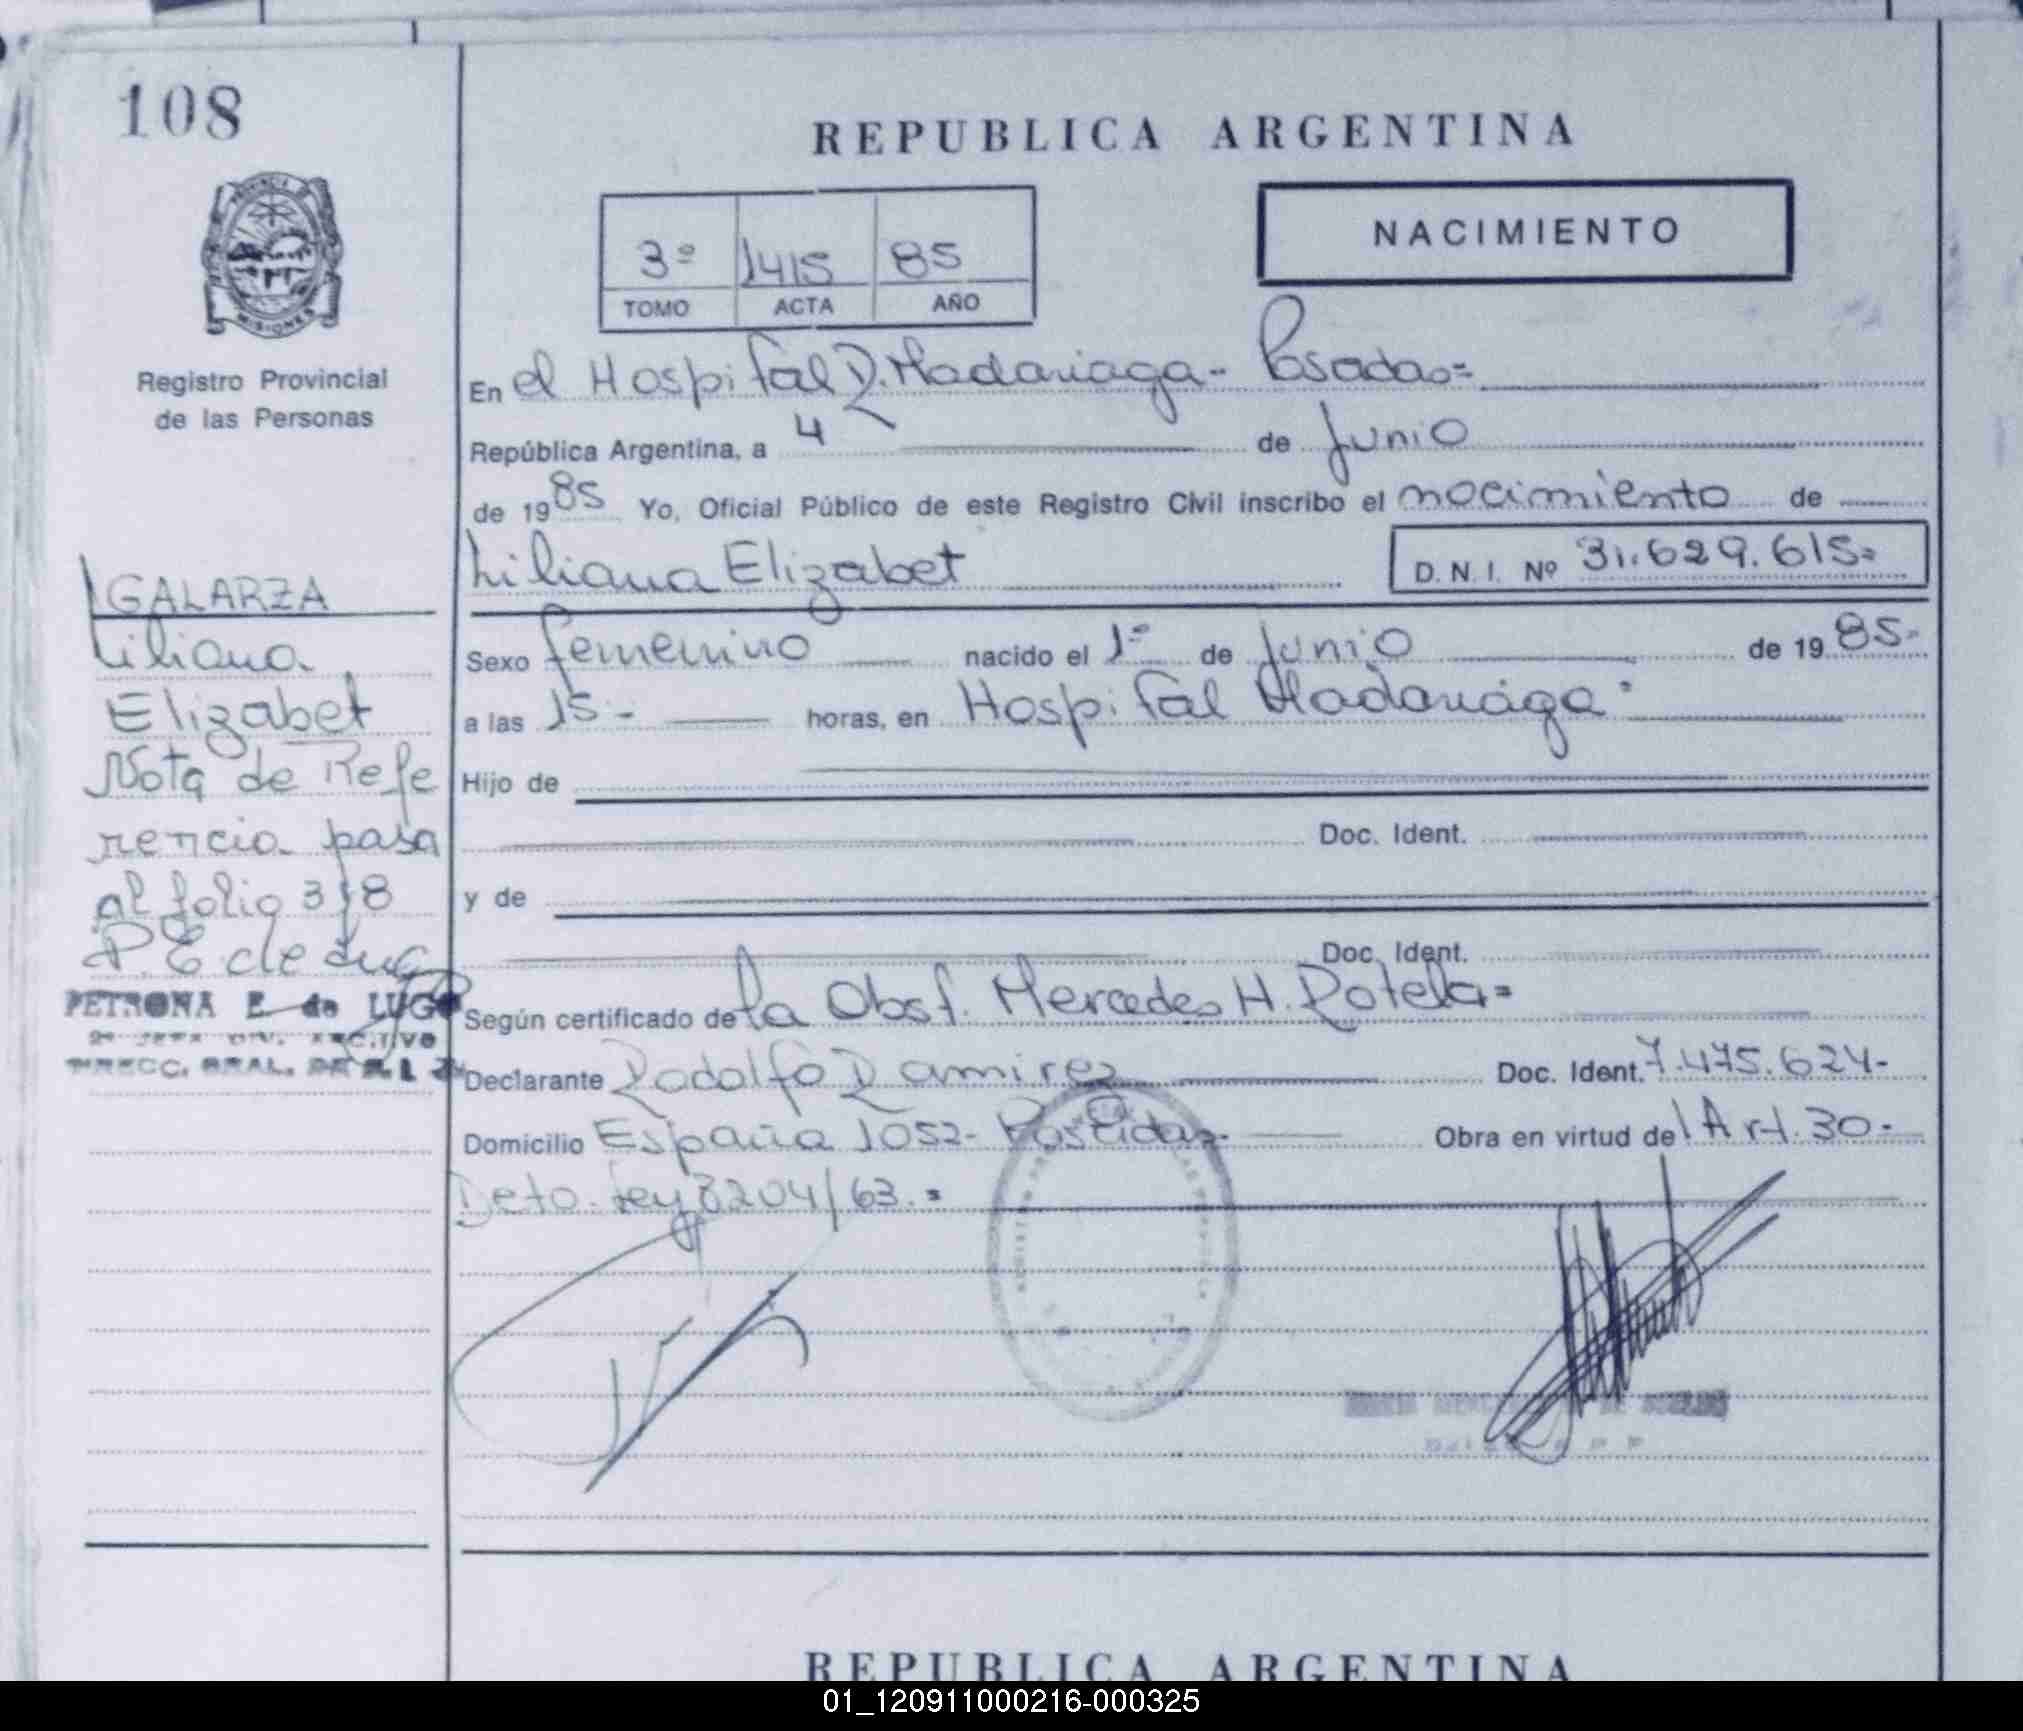 108
REPUBLICA ARGENTINA
NACIMIENTO
3º 1415 85
TOMO ACTA AÑO
Registro Provincial
de las Personas
En el Hospital R. Madariaga - Posadas =
República Argentina, a 4 de Junio
de 1985 Yo, Oficial Público de este Registro Civil inscribo el nacimiento de
Liliana Elizabet D.N.I. Nº 31.629.615=
GALARZA
Liliana
Elizabet
Nota de Refe
rencia pasa
al folio 318
P. E de Lug
PETRONA E. de LUGO
DIRECC. GRAL. DE
Sexo femenino nacido el 1º de Junio de 1985-
a las 15 - horas, en Hospital Madariaga
Hijo de
Doc. Ident.
y de
Doc. Ident.
Según certificado de la Obst. Mercedes H. Rotela =
Declarante Rodolfo Ramirez Doc. Ident. 7.475.624-
Domicilio España 1052- Posadas- Obra en virtud del Art. 30-
Deto. Ley 8204/63.=
REPUBLICA ARGENTINA
01_120911000216-000325